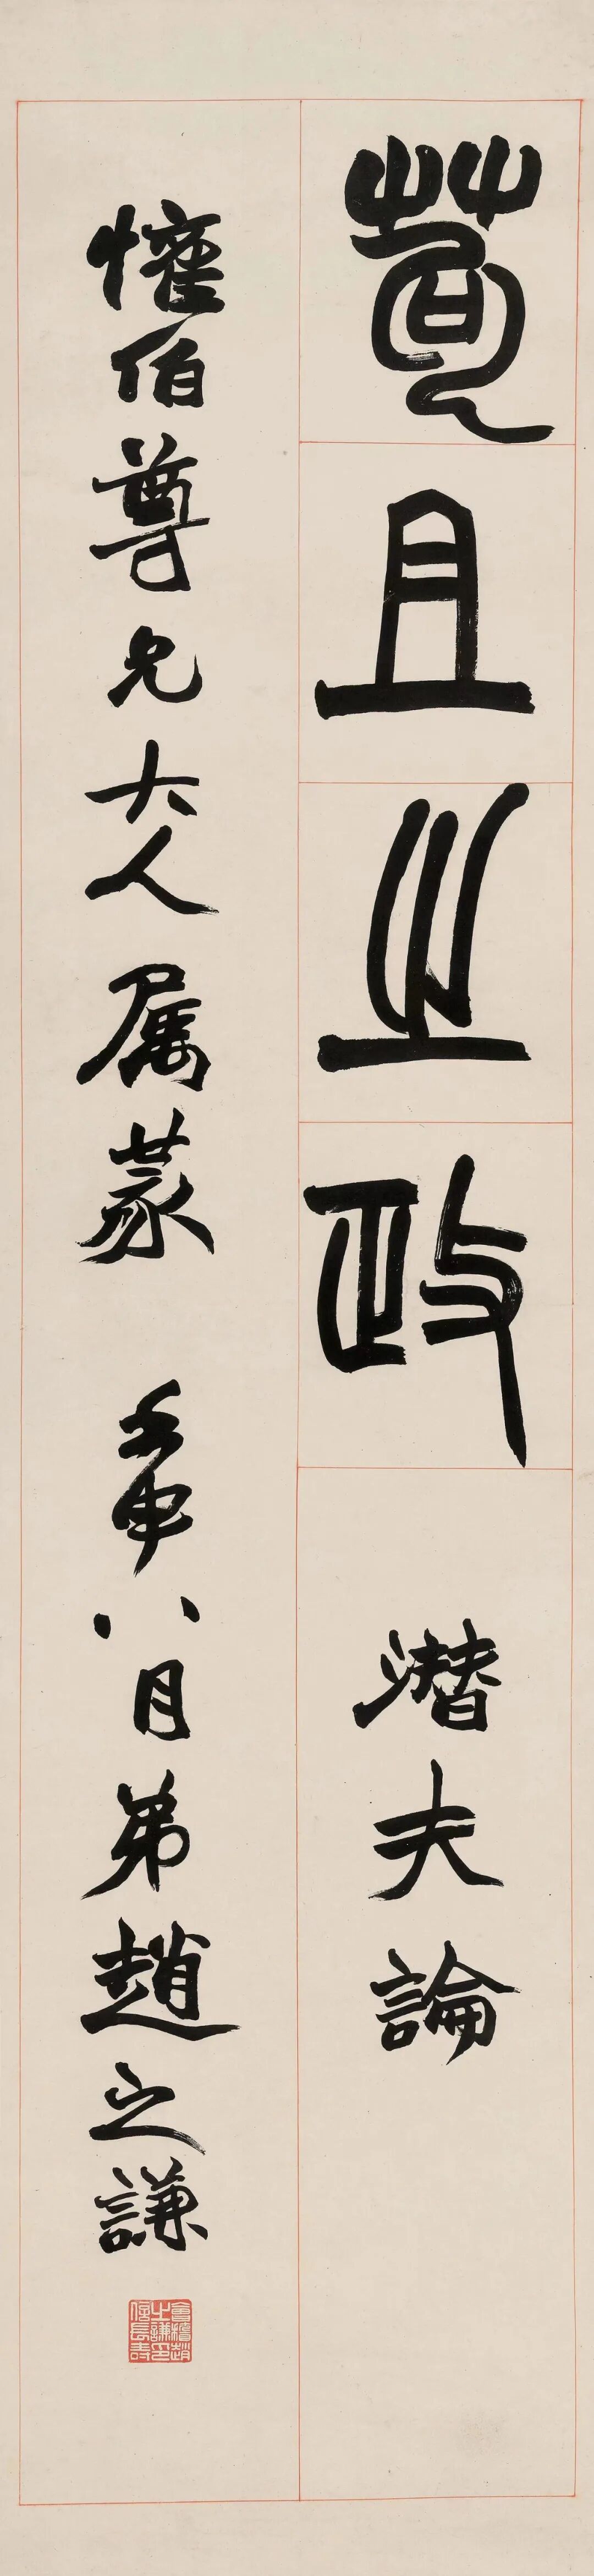 苟且之政
潛夫論
懽伯尊兄大人属篆 壬申八月弟趙之謙
會稽趙之謙印信長壽